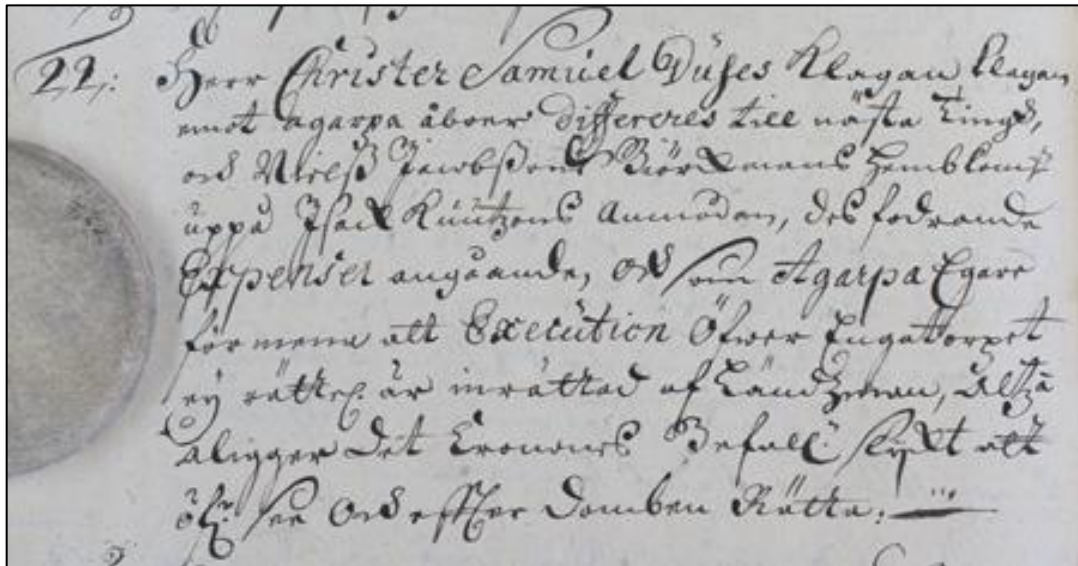 22: Herr Christer Samuel Düses Klagan klagan
emot agarpa åboer differeres till nästa ting,
och Nielß Jacobßons Biörkmans hemblems
uppå Isack Küntzens anmodan, des fodrande
Expenser angående, och som Agarpa Egare
förmena att Execution öfwer Engatorpet
ey rättel. är inrättad af Ländzman, altså
åligger det Cronones Befall: skylt att
see och effter domben Rätta.